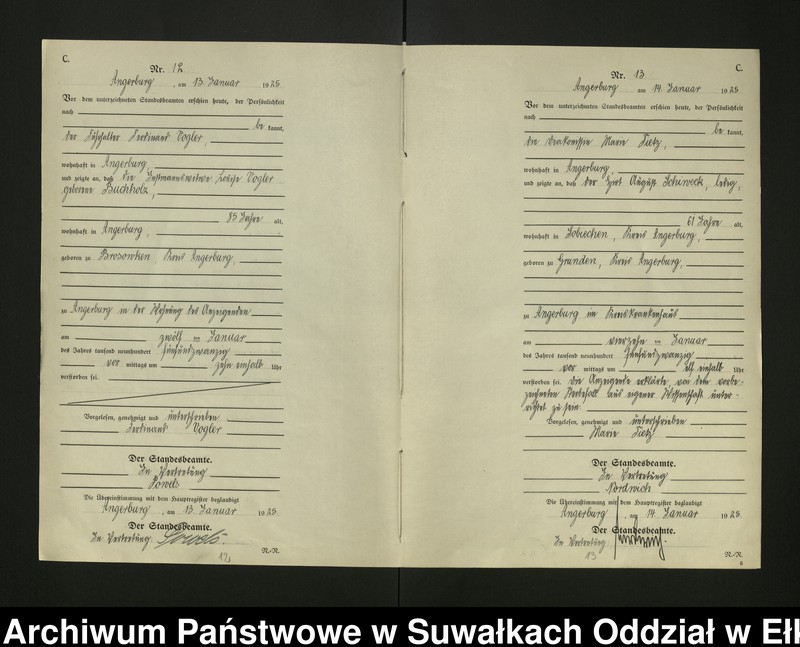 C.
Nr. 12
Angerburg, am 13. Januar 1925
Vor dem unterzeichneten Standesbeamten erschien heute, der Persönlichkeit
nach
be kannt,
der Ferdinand Vogler,
wohnhaft in Angerburg,
und zeigte an, daß die Louise Vogler
geborene Buchholz,
85 Jahre alt,
wohnhaft in Angerburg,
geboren zu Brosowken, Kreis Angerburg,
zu Angerburg in der Wohnung des Anzeigenden
am zwölf ten Januar
des Jahres tausend neunhundert fünfundzwanzig
vor mittags um zehn einhalb Uhr
verstorben sei.
Vorgelesen, genehmigt und unterschrieben
Ferdinand Vogler
Der Standesbeamte.
In Vertretung
Die Übereinstimmung mit dem Hauptregister beglaubigt
Angerburg, am 13. Januar 1925
Der Standesbeamte.
In Vertretung:
12
N.-R.
C.
Nr. 13
Angerburg am 14. Januar 1925
Vor dem unterzeichneten Standesbeamten erschien heute, der Persönlichkeit
nach
be kannt,
die Diakonissin Marie Tietz,
wohnhaft in Angerburg,
und zeigte an, daß der Hirt August Schureck, ledig,
61 Jahre alt,
wohnhaft in Sobiechen, Kreis Angerburg,
geboren zu Grunden, Kreis Angerburg,
zu Angerburg im Kreiskrankenhaus
am vierzehn ten Januar
des Jahres tausend neunhundert fünfundzwanzig
vor mittags um elf einhalb Uhr
verstorben sei. Die Anzeigende erklärte, von dem vorbe-
zeichneten Sterbefall aus eigener Wissenschaft unter-
richtet zu sein.
Vorgelesen, genehmigt und unterschrieben
Marie Tietz
Der Standesbeamte.
In Vertretung
Nordwich
Die Übereinstimmung mit dem Hauptregister beglaubigt
Angerburg, am 14. Januar 1925
Der Standesbeamte.
In Vertretung:
13
N.-R.
6
Archiwum Państwowe w Suwałkach Oddział w Ełk